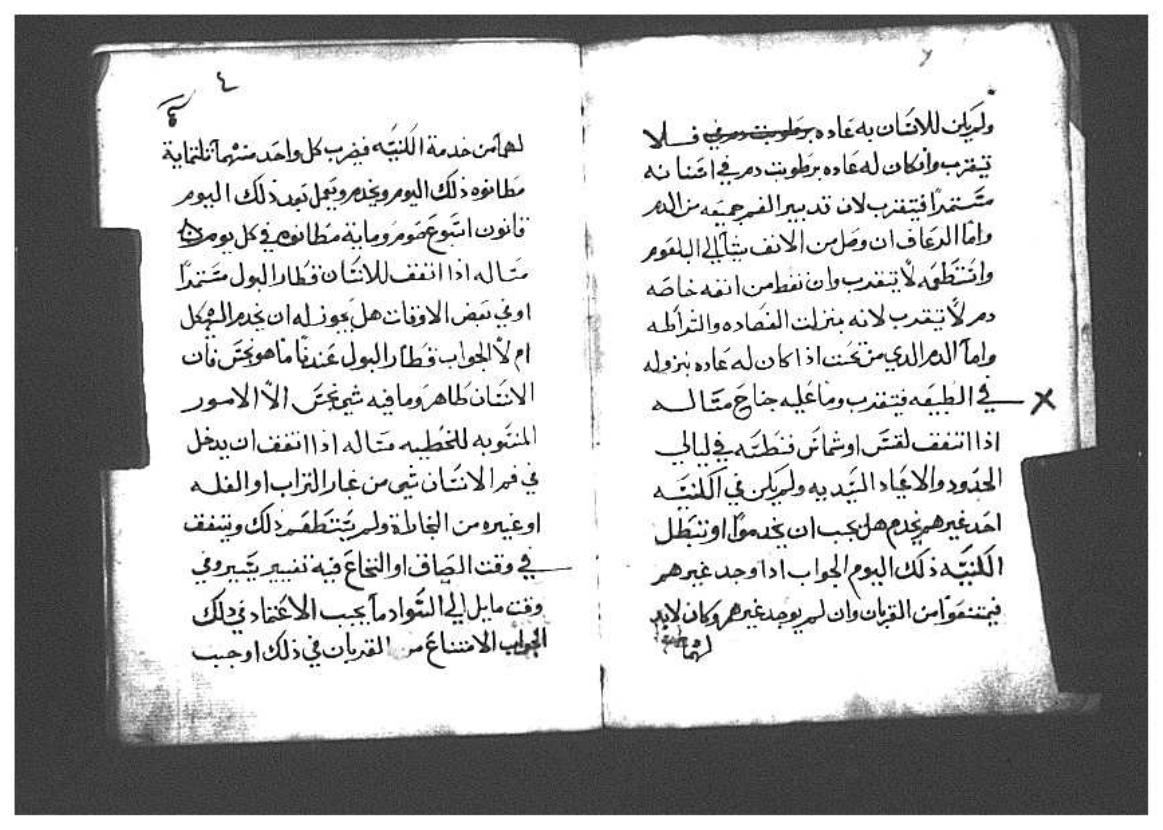 ولم يكن للانسان به عاده برطوبت دم في فـــلا
يتقرب وانكان له عاده برطوبت دم في اسنانه
مستمراً فيتقرب لان تدبير الفم جميعه من الدم
واما الرعاف ان وصل من الانف يتالي البلعوم
واستطعمه لا يتقرب وان نقط من انفه خاصه
دم لا يتقرب لانه بمنزلت الفصاده والشراطه
واما الدم الذي من تحت اذا كان له عاده بنزوله
في الطبيعه فيتقرب وما عليه جناح مساله
اذا اتفق لقس او شماس قنطسه في ليالي
الحدود والاعياد السيديه ولم يكن في الكنيسه
احد غيرهم يخدم هل يجب ان يخدموا او تبطل
الكنيسه ذلك اليوم الجواب اذا وجد غيرهم
فيمتنعوا من القربان وان لم يوجد غيرهم وكان لابد
لهما
٤
لهما من خدمة الكنيسه فيضرب كل واحد منهما ثلثماية
مطانوه ذلك اليوم ويخدم ويعمل بعد ذلك اليوم
قانون اسبوع صوم وماية مطانوه في كل يوم
مساله اذا اتفق للانسان قطار البول مستمراً
او في بعض الاوقات هل يجوز له ان يخدم الهيكل
ام لا الجواب قطار البول عندنا ما هو نجس فان
الانسان طاهر وما فيه شي نجس الا الامور
المنسوبه للخطيه مساله اذا اتفق ان يدخل
في فم الانسان شي من غبار التراب او الغله
او غيره من النخاله ولم يستطعم ذلك ويتفق
في وقت البصاق او النخاع فيه تغيير يسير وفي
وقت مايل الي السواد ما يجب الاعتماد في ذلك
الجواب الامتناع من القربان في ذلك اوجب